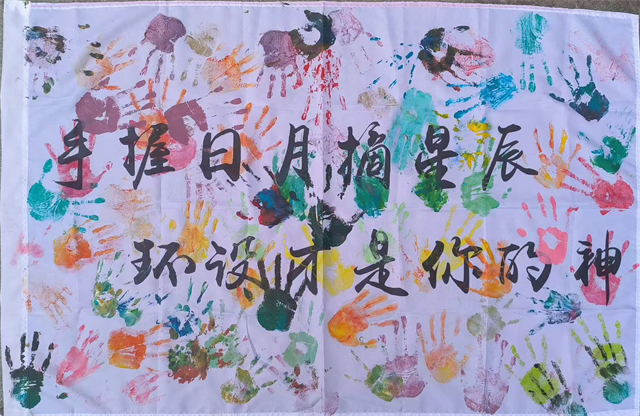 手握日月摘星辰
环设才是你的神